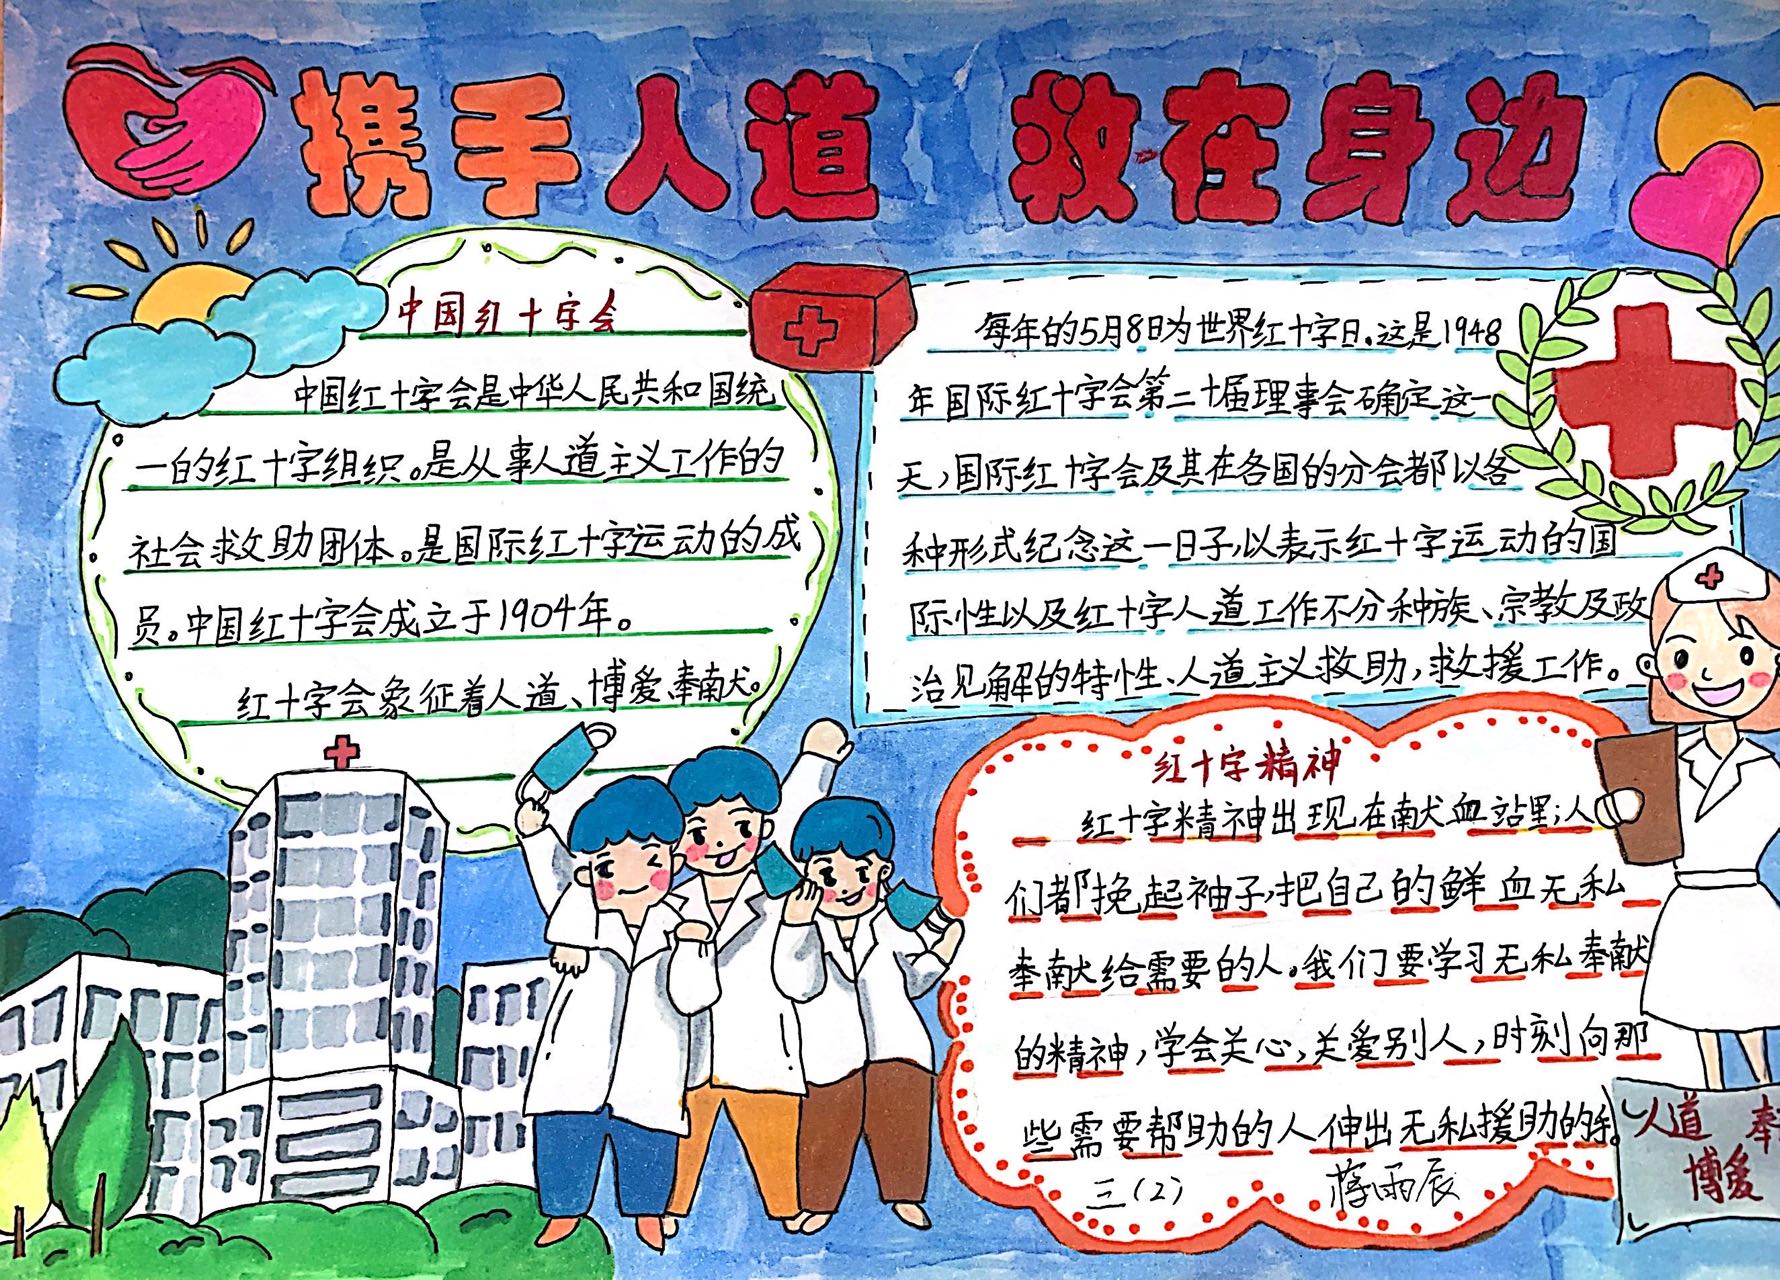 携手人道 救在身边
中国红十字会
中国红十字会是中华人民共和国统
一的红十字组织。是从事人道主义工作的
社会救助团体。是国际红十字运动的成
员。中国红十字会成立于1904年。
红十字会象征着人道、博爱、奉献。
每年的5月8日为世界红十字日。这是1948
年国际红十字会第二十届理事会确定这一
天,国际红十字会及其在各国的分会都以各
种形式纪念这一日子,以表示红十字运动的国
际性以及红十字人道工作不分种族、宗教及政
治见解的特性、人道主义救助,救援工作。
红十字精神
红十字精神出现在献血站里;人
们都挽起袖子,把自己的鲜血无私
奉献给需要的人。我们要学习无私奉献
的精神,学会关心,关爱别人,时刻向那
些需要帮助的人伸出无私援助的手。
三(2) 蒋雨辰
人道 奉
博爱